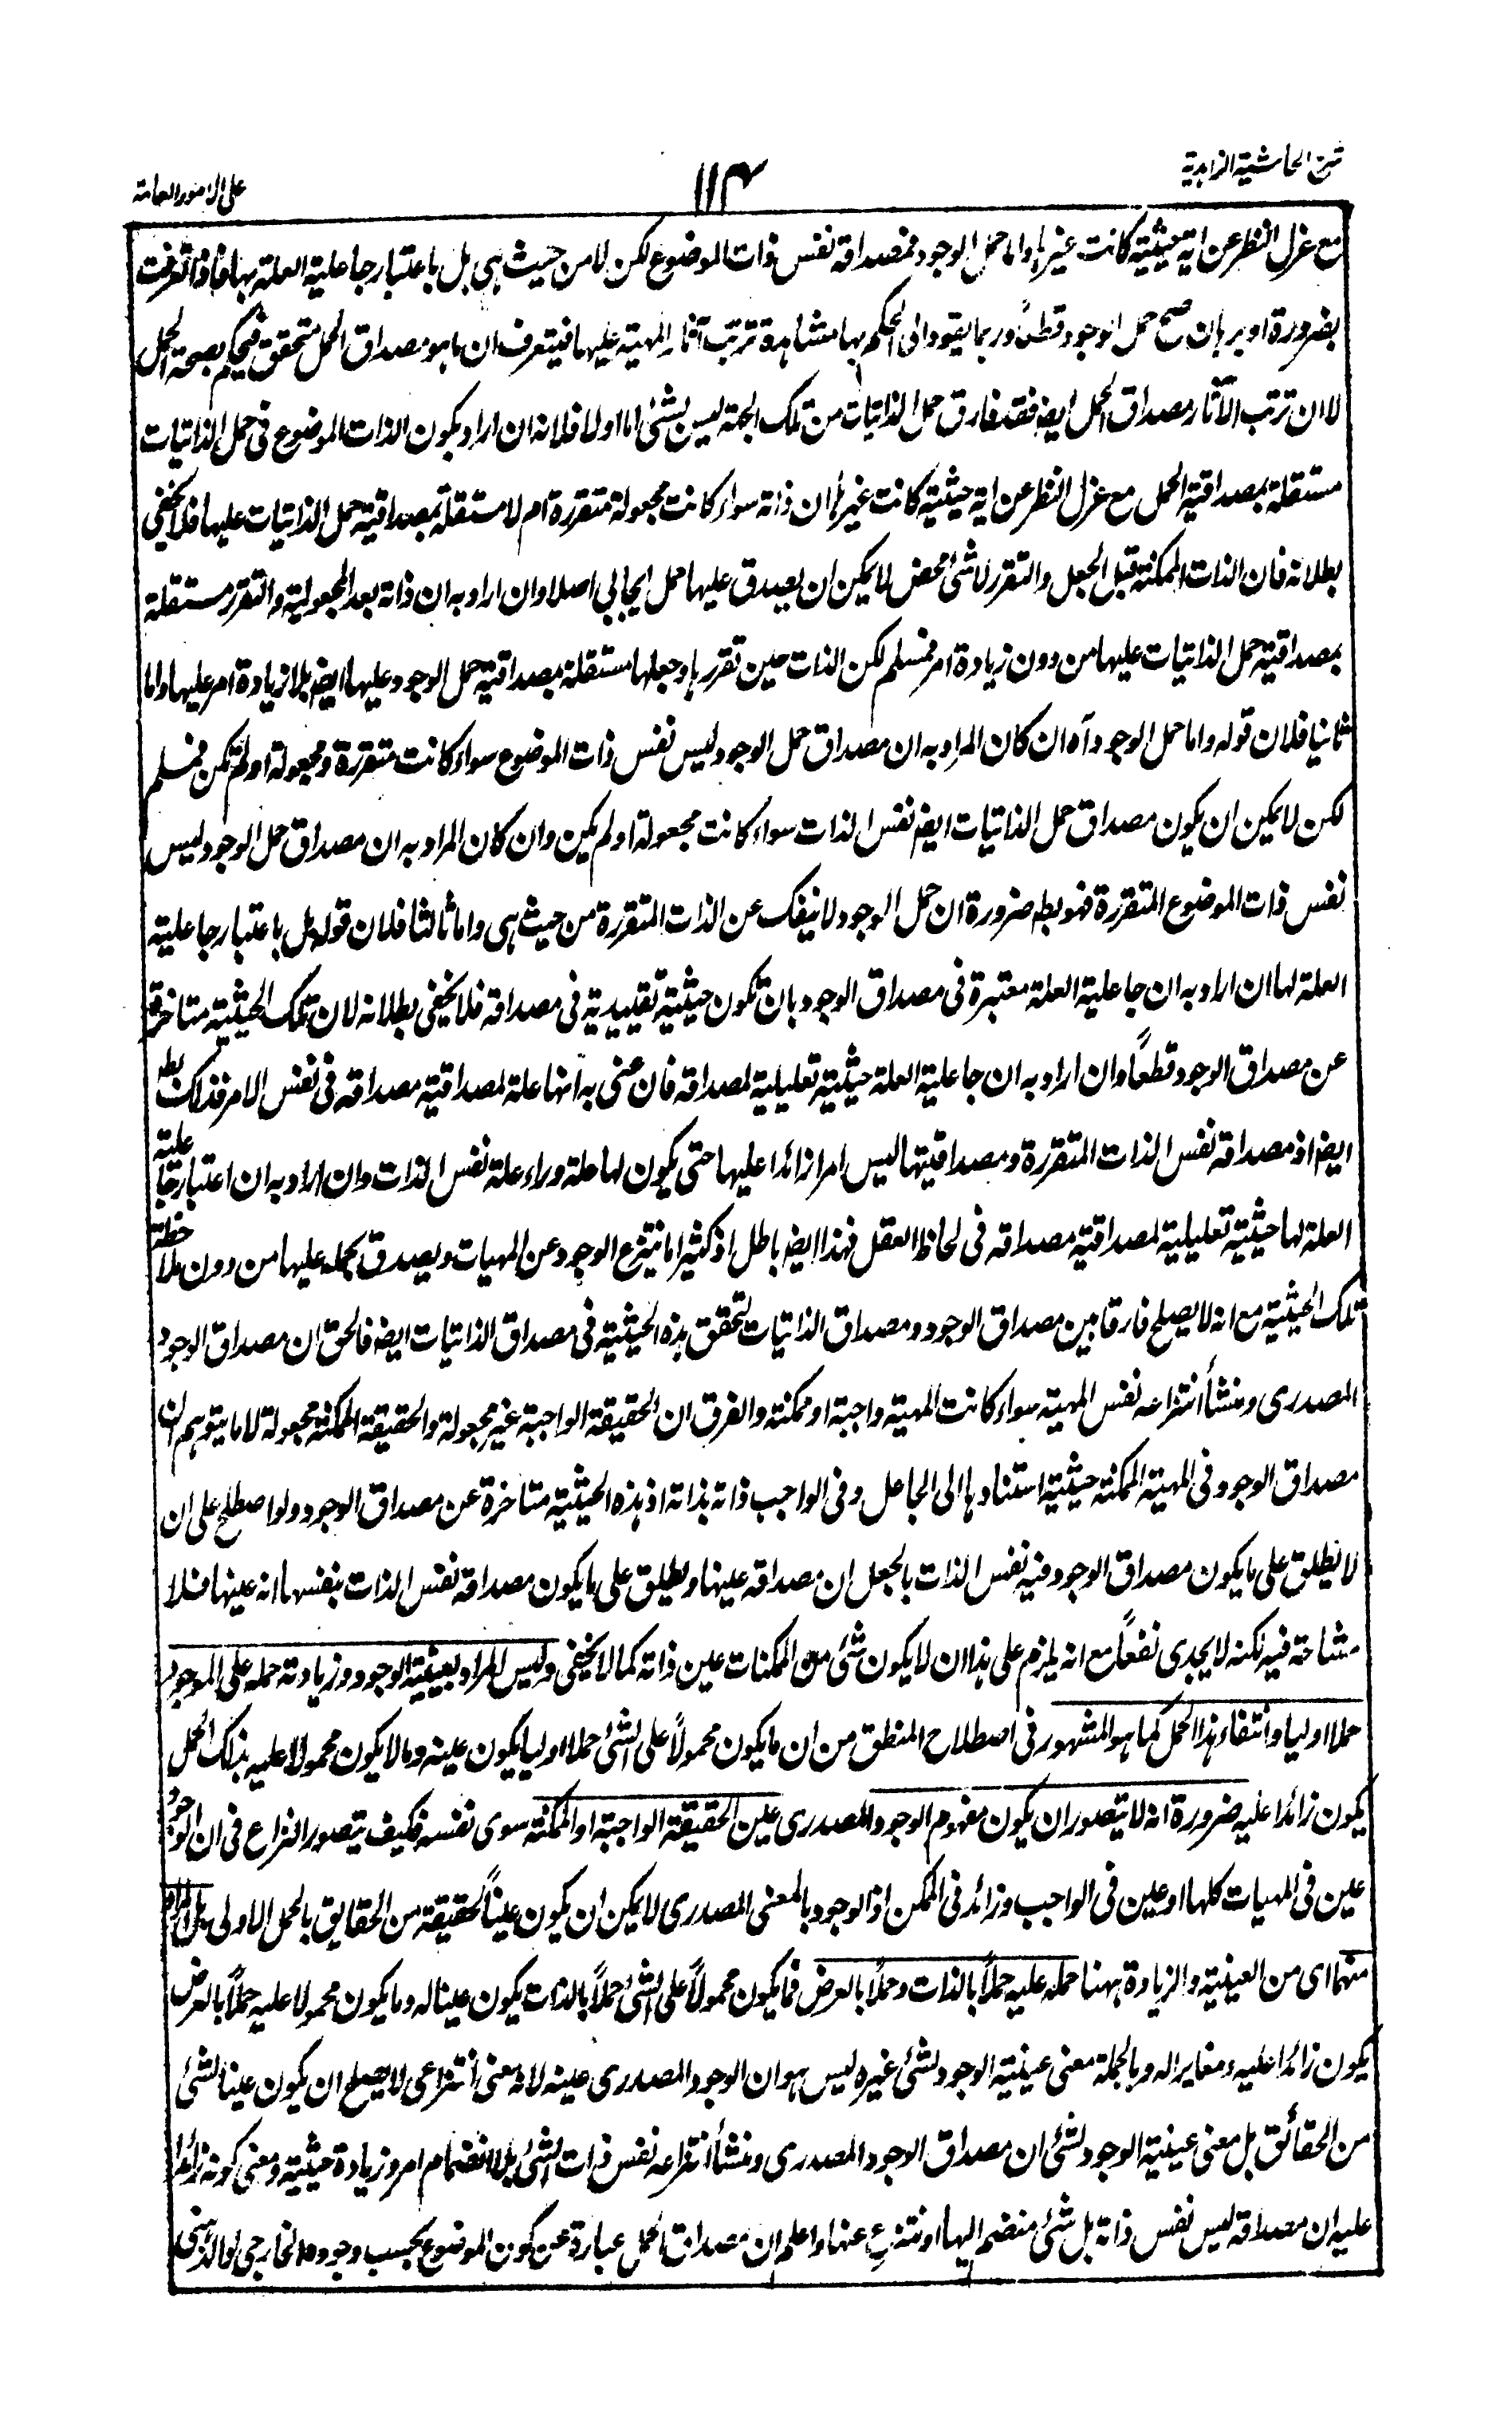 شرح الحاشية الزاهدية
۱۱۴
على الامور العامة
مع عزل النظر عن اية حيثية كانت غيرها واما حمل الوجود فمصداقه نفس ذات الموضوع لكن لا من حيث هى بل باعتبار جاعلية العلة بها فاذا تعرفت
بضرورة او برهان صح حمل الوجود قطعاً وربما يقود الى الحكم بها مشاهدة ترتب آثار المهية عليها فيتعرف ان ما هو مصداق الحمل متحقق فيحكم بصحة الحمل
لا ان ترتب الآثار مصداق الحمل ايضا فقد فارق حمل الذاتيات من تلك الجهة ليس بشئ اما اولا فلانه ان اراد بكون الذات الموضوع فى حمل الذاتيات
مستقلة بمصداقية الحمل مع عزل النظر عن اية حيثية كانت غيرها ان ذاته سواء كانت مجعولة متقررة ام لا مستقلة بمصداقية حمل الذاتيات عليها فلا يخفى
بطلانه فان الذات الممكنة قبل الجعل والتقرر لا شئ محض لا يمكن ان يصدق عليها حمل ايجابي اصلا وان اراد به ان ذاته بعد المجعولية والتقرر مستقلة
بمصداقية حمل الذاتيات عليها من دون زيادة امر فمسلم لكن الذات حين تقررها وجعلها مستقلة بمصداقية حمل الوجود عليها ايضا بلا زيادة امر عليها واما
ثانيا فلان قوله واما حمل الوجود آه ان كان المراد به ان مصداق حمل الوجود ليس نفس ذات الموضوع سواء كانت متقررة ومجعولة او لم تكن فمسلم
لكن لا يمكن ان يكون مصداق حمل الذاتيات ايضا نفس الذات سواء كانت مجعولة او لم يكن وان كان المراد به ان مصداق حمل الوجود ليس
نفس ذات الموضوع المتقررة فهو بط ضرورة ان حمل الوجود لا ينفك عن الذات المتقررة من حيث هى واما ثالثا فلان قوله بل باعتبار جاعلية
العلة لها ان اراد به ان جاعلية العلة معتبرة فى مصداق الوجود بان تكون حيثية تقييدية فى مصداقه فلا يخفى بطلانه لان تلك الحيثية متاخرة
عن مصداق الوجود قطعاً وان اراد به ان جاعلية العلة حيثية تعليلية لمصداقه فان عنى به انها علة لمصداقية مصداقه فى نفس الامر فذلك بط
ايضا اذ مصداقه نفس الذات المتقررة ومصداقيتها ليس امرا زائدا عليها حتى يكون لها علة وراء علة نفس الذات وان اراد به ان اعتبار جاعلية
العلة لها حيثية تعليلية لمصداقية مصداقه فى لحاظ العقل فهذا ايضا باطل اذ كثيرا ما ينتزع الوجود عن المهيات ويصدق بحمله عليها من دون ملاحظة
تلك الحيثية مع انه لا يصلح فارقا بين مصداق الوجود ومصداق الذاتيات لتحقق هذه الحيثية فى مصداق الذاتيات ايضا فالحق ان مصداق الوجود
المصدرى ومنشأ انتزاعه نفس المهية سواء كانت المهية واجبة او ممكنة والفرق ان الحقيقة الواجبة غير مجعولة والحقيقة الممكنة مجعولة لا ما يتوهم ان
مصداق الوجود فى المهية الممكنة حيثية استنادها الى الجاعل وفى الواجب ذاته بذاته اذ هذه الحيثية متاخرة عن مصداق الوجود ولو اصطلح على ان
لا يطلق على ما يكون مصداق الوجود فيه نفس الذات بالجعل ان مصداقه عينها ويطلق على ما يكون مصداقه نفس الذات بنفسها انه عينها فلا
مشاحة فيه لكنه لا يجدى نفعاً مع انه يلزم على هذا ان لا يكون شئ من الممكنات عين ذاته كما لا يخفى وليس المراد بعينية الوجود وزيادته حمله على الموجود
حملا اوليا وانتفاء هذا الحمل كما هو المشهور فى اصطلاح المنطق من ان ما يكون محمولاً على الشئ حملا اوليا يكون عينه وما لا يكون محمولا عليه بذلك الحمل
يكون زائدا عليه ضرورة انه لا يتصور ان يكون مفهوم الوجود المصدرى عين الحقيقة الواجبة او الممكنة سوى نفسه فكيف يتصور النزاع فى ان الوجود
عين فى المهيات كلها او عين فى الواجب وزائد فى الممكن اذ الوجود بالمعنى المصدرى لا يمكن ان يكون عيناً لحقيقة من الحقايق بالحمل الاولى بل المراد
منهما اى من العينية والزيادة ههنا حمله عليه حملاً بالذات وحملاً بالعرض فما يكون محمولاً على الشئ حملاً بالذات يكون عينا له وما يكون محمولا عليه حملاً بالعرض
يكون زائدا عليه ومغايرا له وبالجملة معنى عينية الوجود لشئ غيره ليس هو ان الوجود المصدرى عينه لانه معنى انتزاعى لا يصلح ان يكون عينا لشئ
من الحقائق بل معنى عينية الوجود لشئ ان مصداق الوجود المصدرى ومنشأ انتزاعه نفس ذات الشئ بلا انضمام امر وزيادة حيثية ومعنى كونه زائدا
عليه ان مصداقه ليس نفس ذاته بل شئ منضم اليها او منتزع عنها واعلم ان مصداق الحمل عبارة عن كون الموضوع بحسب وجوده الخارجي او الذهنى